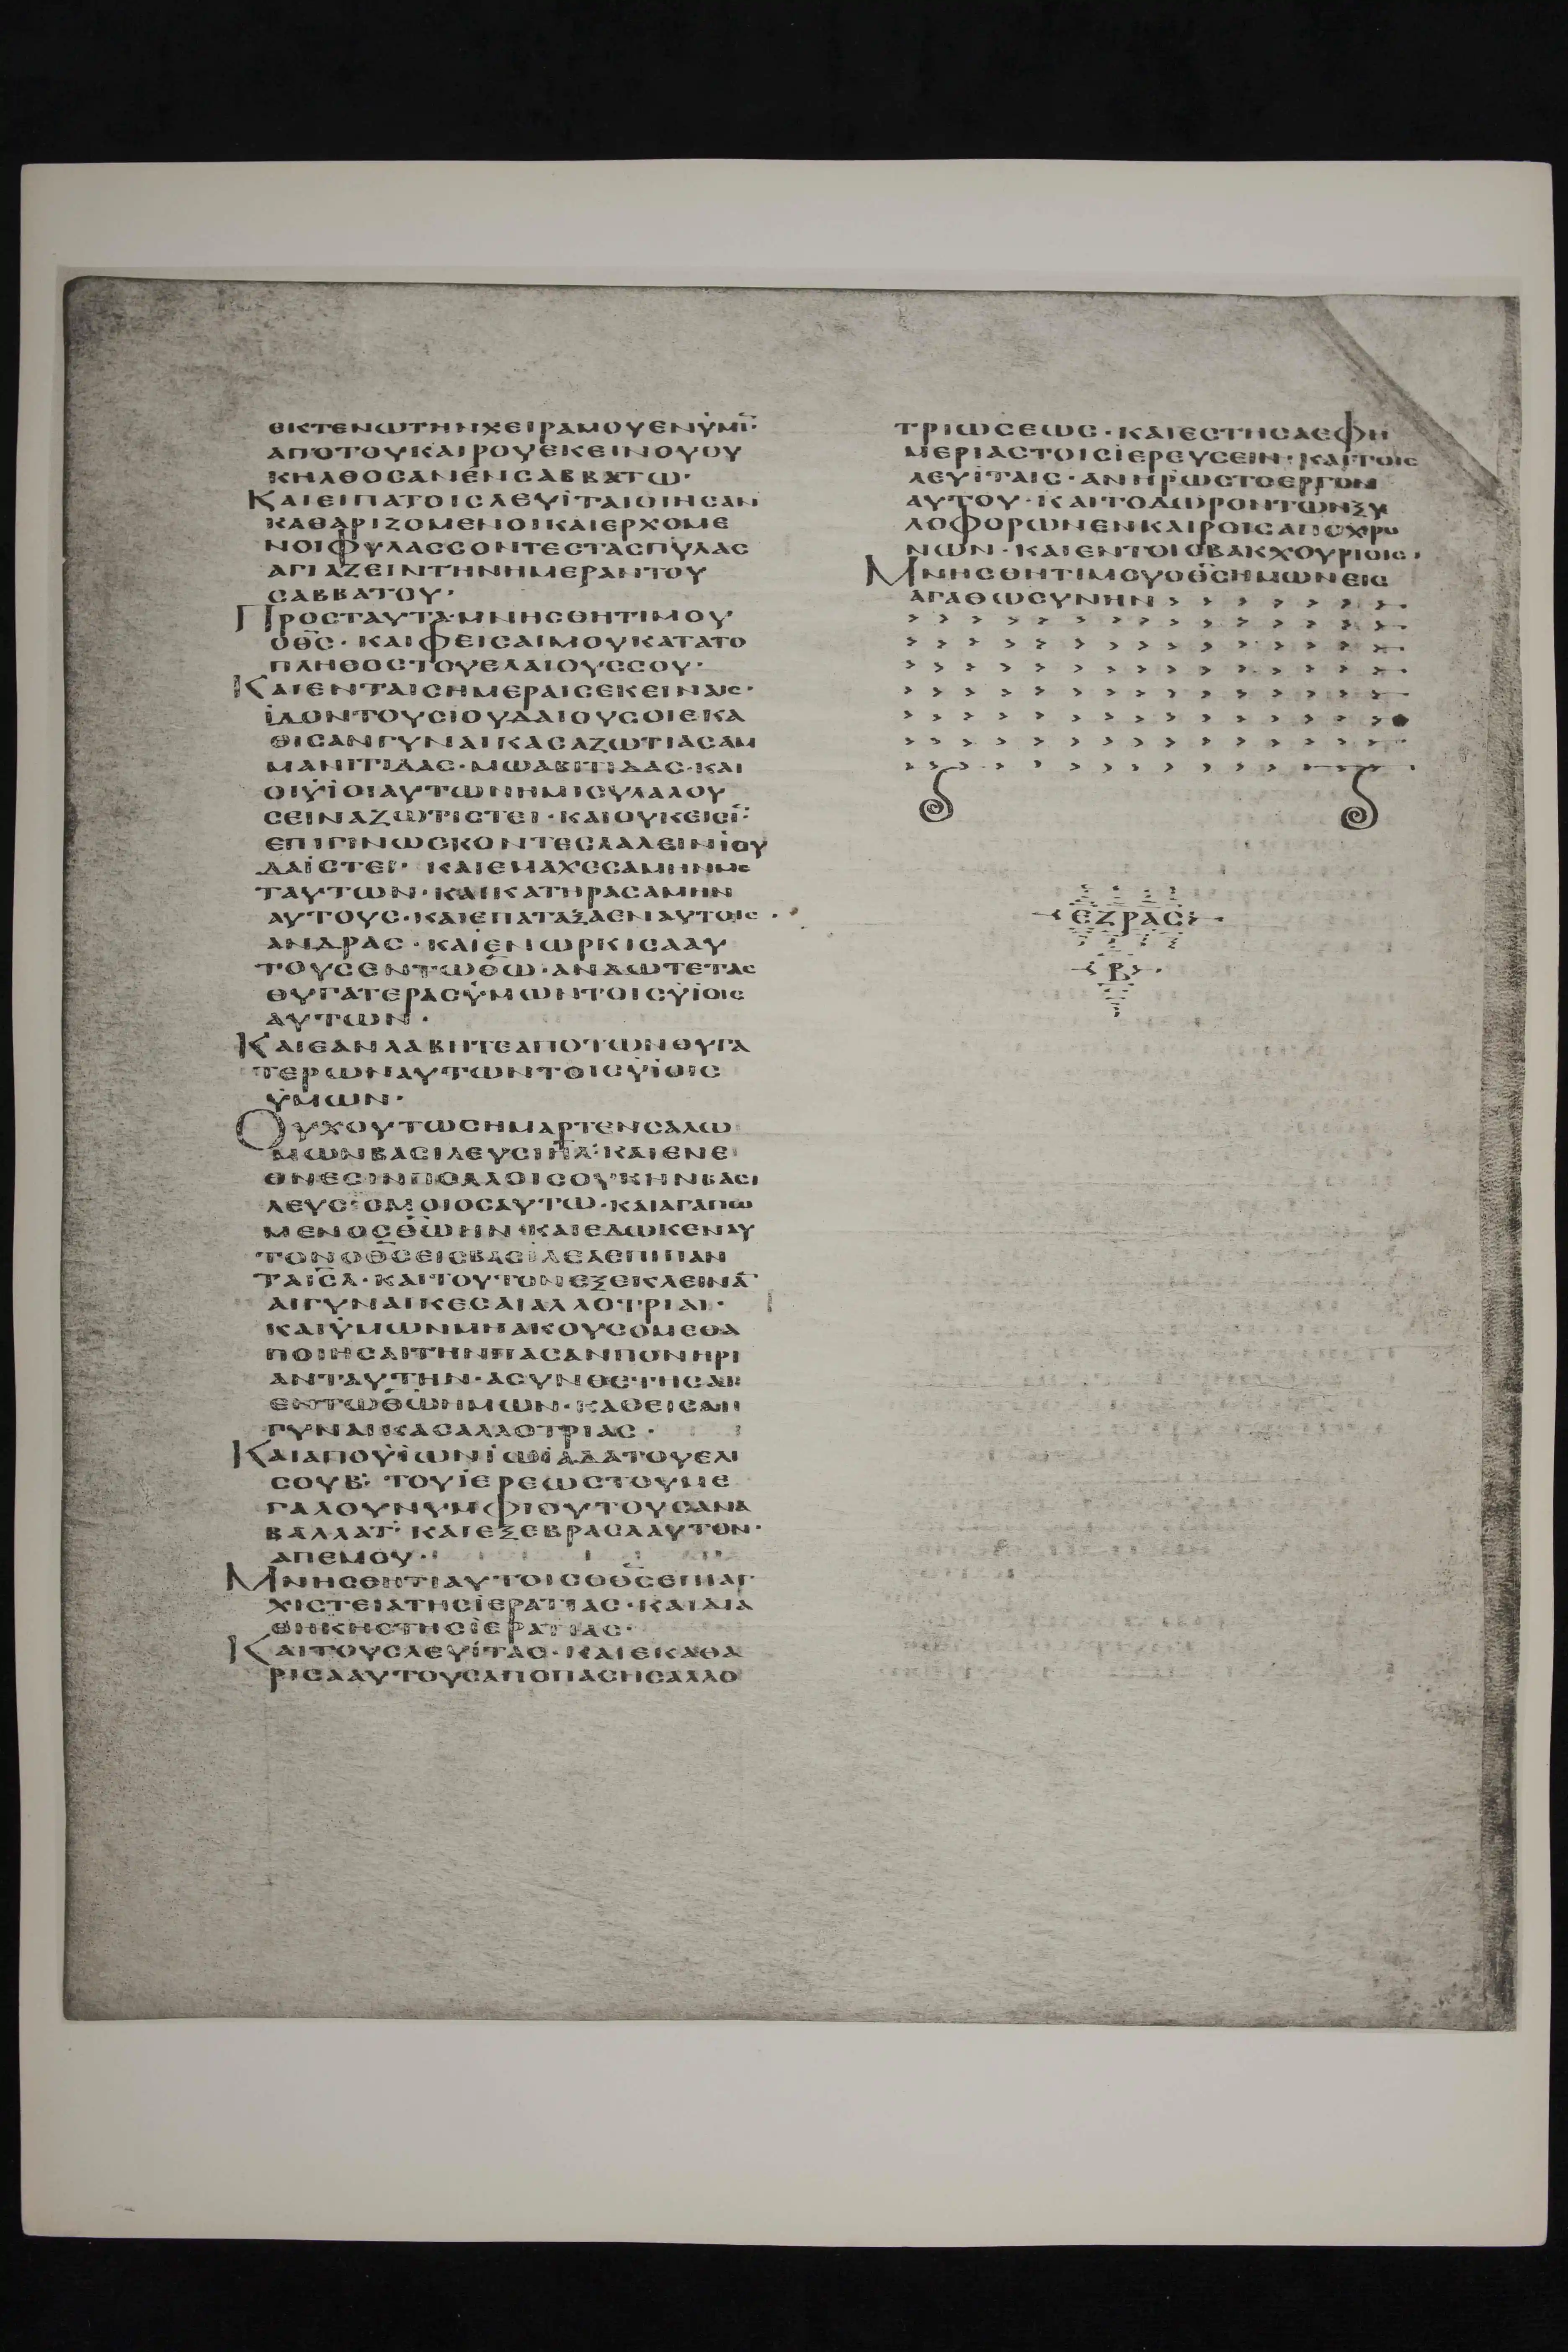 ΘΙΚΤΕΝΩΤΗΝΧΕΙΡΑΜΟΥΕΝΫΜΙ̅·
ΑΠΟΤΟΥΚΑΙΡΟΥΕΚΕΙΝΟΥΟΥ
ΚΗΛΘΟΣΑΝΕΝΣΑΒΒΑΤΩ·
ΚΑΙΕΙΠΑΤΟΙΣΛΕΥΪΤΑΙΟΙΗΣΑΝ
ΚΑΘΑΡΙΖΟΜΕΝΟΙΚΑΙΕΡΧΟΜΕ
ΝΟΙΦΥΛΑΣΣΟΝΤΕΣΤΑΣΠΥΛΑΣ
ΑΓΙΑΖΕΙΝΤΗΝΗΜΕΡΑΝΤΟΥ
ΣΑΒΒΑΤΟΥ·
ΠΡΟΣΤΑΥΤΑ·ΜΝΗΣΘΗΤΙΜΟΥ
ΟΘ̅Σ̅·ΚΑΙΦΕΙΣΑΙΜΟΥΚΑΤΑΤΟ
ΠΛΗΘΟΣΤΟΥΕΛΑΙΟΥΣΣΟΥ·
ΚΑΙΕΝΤΑΙΣΗΜΕΡΑΙΣΕΚΕΙΝΑΙΣ·
ΪΔΟΝΤΟΥΣΙΟΥΔΑΙΟΥΣΟΙΕΚΑ
ΘΙΣΑΝΓΥΝΑΙΚΑΣΑΖΩΤΙΑΣΑΜ
ΜΑΝΙΤΙΔΑΣ·ΜΩΑΒΙΤΙΔΑΣ·ΚΑΙ
ΟΙΫΪΟΙΑΥΤΩΝΗΜΙΣΥΛΑΛΟΥ
ΣΕΙΝΑΖΩΤΙΣΤΕΙ·ΚΑΙΟΥΚΕΙΣΙ̅·
ΕΠΙΓΙΝΩΣΚΟΝΤΕΣΛΑΛΕΙΝΪΟΥ
ΔΑΪΣΤΕΙ·ΚΑΙΕΜΑΧΕΣΑΜΗΝΜΕ
ΤΑΥΤΩΝ·ΚΑΙΚΑΤΗΡΑΣΑΜΗΝ
ΑΥΤΟΥΣ·ΚΑΙΕΠΑΤΑΞΑΕΝΑΥΤΟΙΣ·
ΑΝΔΡΑΣ·ΚΑΙΕΝΩΡΚΙΣΑΑΥ
ΤΟΥΣΕΝΤΩΘ̅Ω̅·ΑΝΔΩΤΕΤΑΣ
ΘΥΓΑΤΕΡΑΣΫΜΩΝΤΟΙΣΫΪΟΙΣ
ΑΥΤΩΝ·
ΚΑΙΕΑΝΛΑΒΗΤΕΑΠΟΤΩΝΘΥΓΑ
ΤΕΡΩΝΑΥΤΩΝΤΟΙΣΫΪΟΙΣ
ΫΜΩΝ·
ΟΥΧΟΥΤΩΣΗΜΑΡΤΕΝΣΑΛΩ
ΜΩΝΒΑΣΙΛΕΥΣΙΗ̅Λ̅·ΚΑΙΕΝΕ
ΘΝΕΣΙΝΠΟΛΛΟΙΣΟΥΚΗΝΒΑΣΙ
ΛΕΥΣΟΜΟΙΟΣΑΥΤΩ·ΚΑΙΑΓΑΠΩ
ΜΕΝΟΣΘ̅Ω̅ΗΝ·ΚΑΙΕΔΩΚΕΝΑΥ
ΤΟΝΟΘ̅Σ̅ΕΙΣΒΑΣΙΛΕΑΕΠΙΠΑΝ
ΤΑΙ̅Σ̅Λ̅·ΚΑΙΤΟΥΤΟΝΕΞΕΚΛΕΙΝΑ̅
ΑΙΓΥΝΑΙΚΕΣΑΙΑΛΛΟΤΡΙΑΙ·
ΚΑΙΫΜΩΝΜΗΑΚΟΥΣΟΜΕΘΑ
ΠΟΙΗΣΑΙΤΗΝΠΑΣΑΝΠΟΝΗΡΙ
ΑΝΤΑΥΤΗΝ·ΑΣΥΝΘΕΤΗΣΑΙ
ΕΝΤΩΘ̅Ω̅ΗΜΩΝ·ΚΑΘΕΙΣΑΙ
ΓΥΝΑΙΚΑΣΑΛΛΟΤΡΙΑΣ·
ΚΑΙΑΠΟΫΪΩΝΪΩΪΑΔΑΤΟΥΕΛΙ
ΣΟΥΒ·ΤΟΥΪΕΡΕΩΣΤΟΥΜΕ
ΓΑΛΟΥΝΥΜΦΙΟΥΤΟΥΣΑΝΑ
ΒΑΛΛΑΤ·ΚΑΙΕΞΕΒΡΑΣΑΑΥΤΟΝ·
ΑΠΕΜΟΥ·
ΜΝΗΣΘΗΤΙΑΥΤΟΙΣΟΘ̅Σ̅ΕΠΙΑΓ
ΧΙΣΤΕΙΑΤΗΣΪΕΡΑΤΙΑΣ·ΚΑΙΔΙΑ
ΘΗΚΗΣΤΗΣΪΕΡΑΤΙΑΣ·
ΚΑΙΤΟΥΣΛΕΥΪΤΑΣ·ΚΑΙΕΚΑΘΑ
ΡΙΣΑΑΥΤΟΥΣΑΠΟΠΑΣΗΣΑΛΛΟ
ΤΡΙΩΣΕΩΣ·ΚΑΙΕΣΤΗΣΑΕΦΗ
ΜΕΡΙΑΣΤΟΙΣΪΕΡΕΥΣΕΙΝ·ΚΑΙΤΟΙΣ
ΛΕΥΪΤΑΙΣ·ΑΝΗΡΩΣΤΟΕΡΓΟΝ
ΑΥΤΟΥ·ΚΑΙΤΟΔΩΡΟΝΤΩΝΞΥ
ΛΟΦΟΡΩΝΕΝΚΑΙΡΟΙΣΑΠΟΧΡΟ
ΝΩΝ·ΚΑΙΕΝΤΟΙΣΒΑΚΧΟΥΡΙΟΙΣ·
ΜΝΗΣΘΗΤΙΜΟΥΟΘ̅Σ̅ΗΜΩΝΕΙΣ
ΑΓΑΘΩΣΥΝΗΝ
ΕΖΡΑΣ
Β